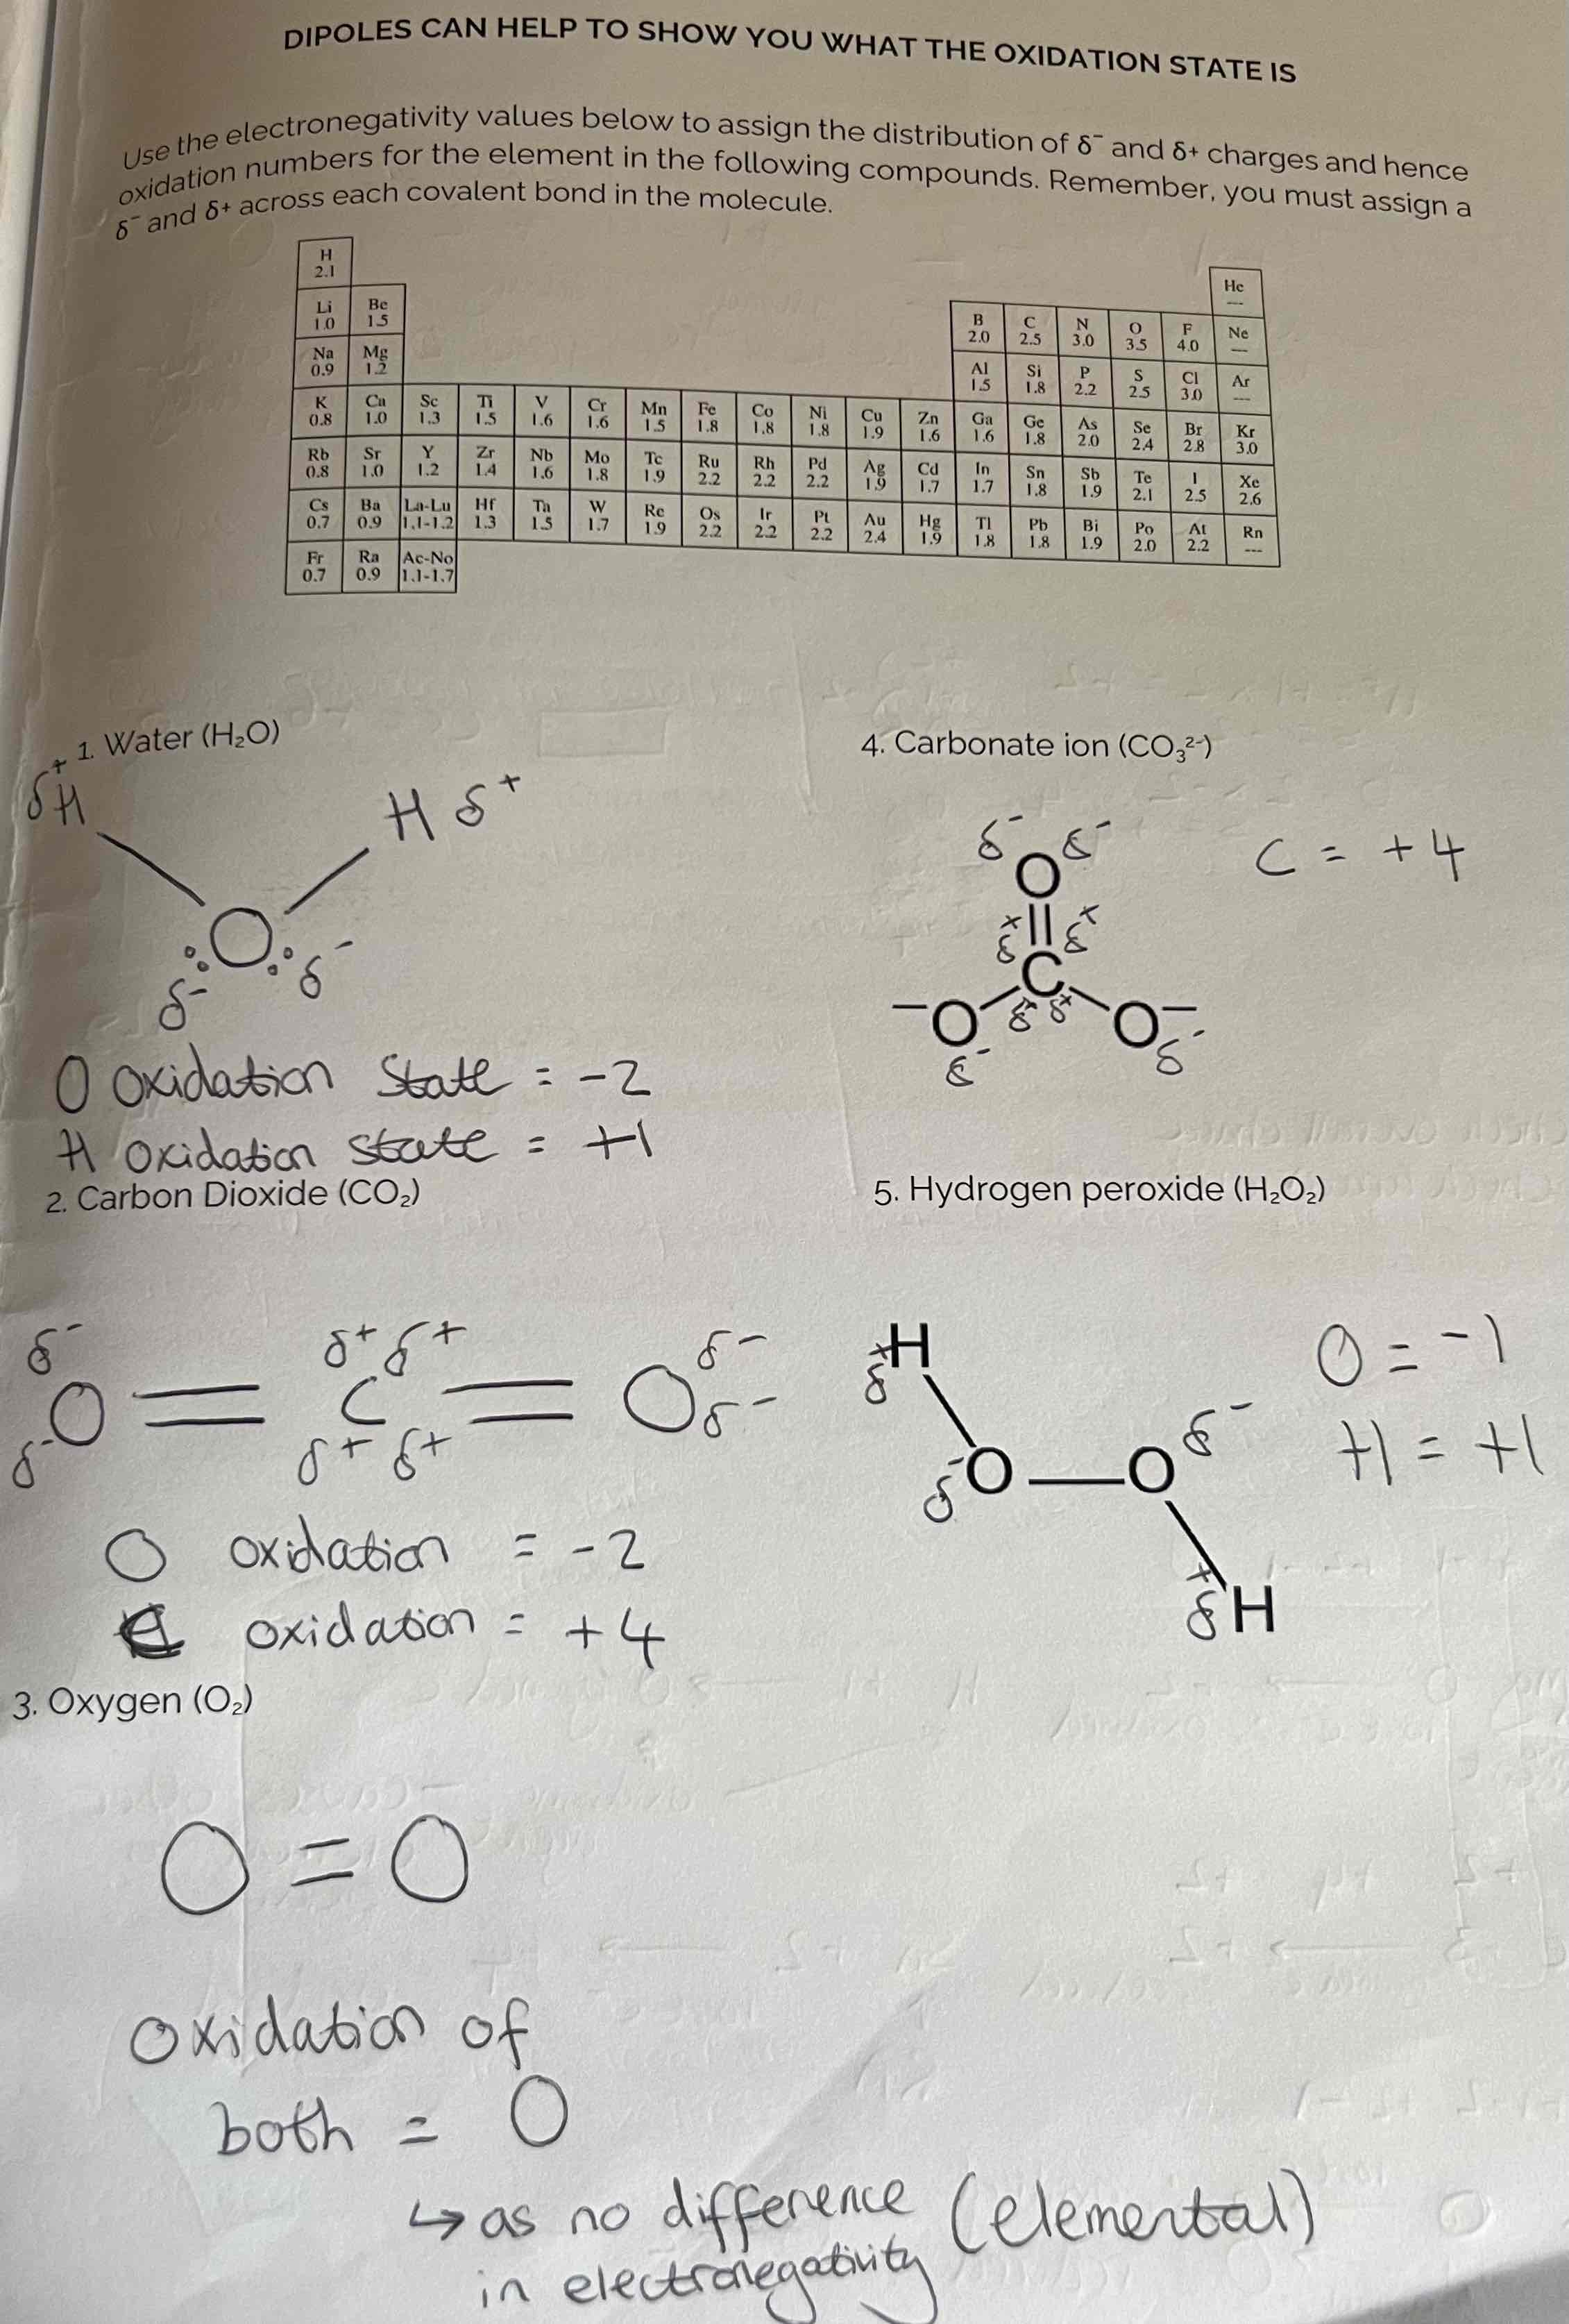 DIPOLES CAN HELP TO SHOW YOU WHAT THE OXIDATION STATE IS
Use the electronegativity values below to assign the distribution of δ⁻ and δ+ charges and hence
oxidation numbers for the element in the following compounds. Remember, you must assign a
δ⁻ and δ+ across each covalent bond in the molecule.
H He
2.1 ---
Li Be B C N O F Ne
1.0 1.5 2.0 2.5 3.0 3.5 4.0 ---
Na Mg Al Si P S Cl Ar
0.9 1.2 1.5 1.8 2.2 2.5 3.0 ---
K Ca Sc Ti V Cr Mn Fe Co Ni Cu Zn Ga Ge As Se Br Kr
0.8 1.0 1.3 1.5 1.6 1.6 1.5 1.8 1.8 1.8 1.9 1.6 1.6 1.8 2.0 2.4 2.8 3.0
Rb Sr Y Zr Nb Mo Tc Ru Rh Pd Ag Cd In Sn Sb Te I Xe
0.8 1.0 1.2 1.4 1.6 1.8 1.9 2.2 2.2 2.2 1.9 1.7 1.7 1.8 1.9 2.1 2.5 2.6
Cs Ba La-Lu Hf Ta W Re Os Ir Pt Au Hg Tl Pb Bi Po At Rn
0.7 0.9 1.1-1.2 1.3 1.5 1.7 1.9 2.2 2.2 2.2 2.4 1.9 1.8 1.8 1.9 2.0 2.2 ---
Fr Ra Ac-No
0.7 0.9 1.1-1.7
1. Water (H₂O)
δ⁺ H H δ⁺
O
δ⁻ δ⁻
O oxidation state = -2
H oxidation state = +1
2. Carbon Dioxide (CO₂)
δ⁻ δ⁺ δ⁺ δ⁻
O = C = O
δ⁻ δ⁺ δ⁺ δ⁻
O oxidation = -2
C oxidation = +4
3. Oxygen (O₂)
O = O
Oxidation of
both = 0
↳ as no difference (elemental)
in electronegativity
4. Carbonate ion (CO₃²⁻)
δ⁻ O δ⁻
C = +4
δ⁺ || δ⁺
C
⁻O δ⁺ δ⁺ O⁻
δ⁻ δ⁻
5. Hydrogen peroxide (H₂O₂)
δ⁺ H
O = -1
δ⁻ O — O δ⁻
H = +1
δ⁺ H